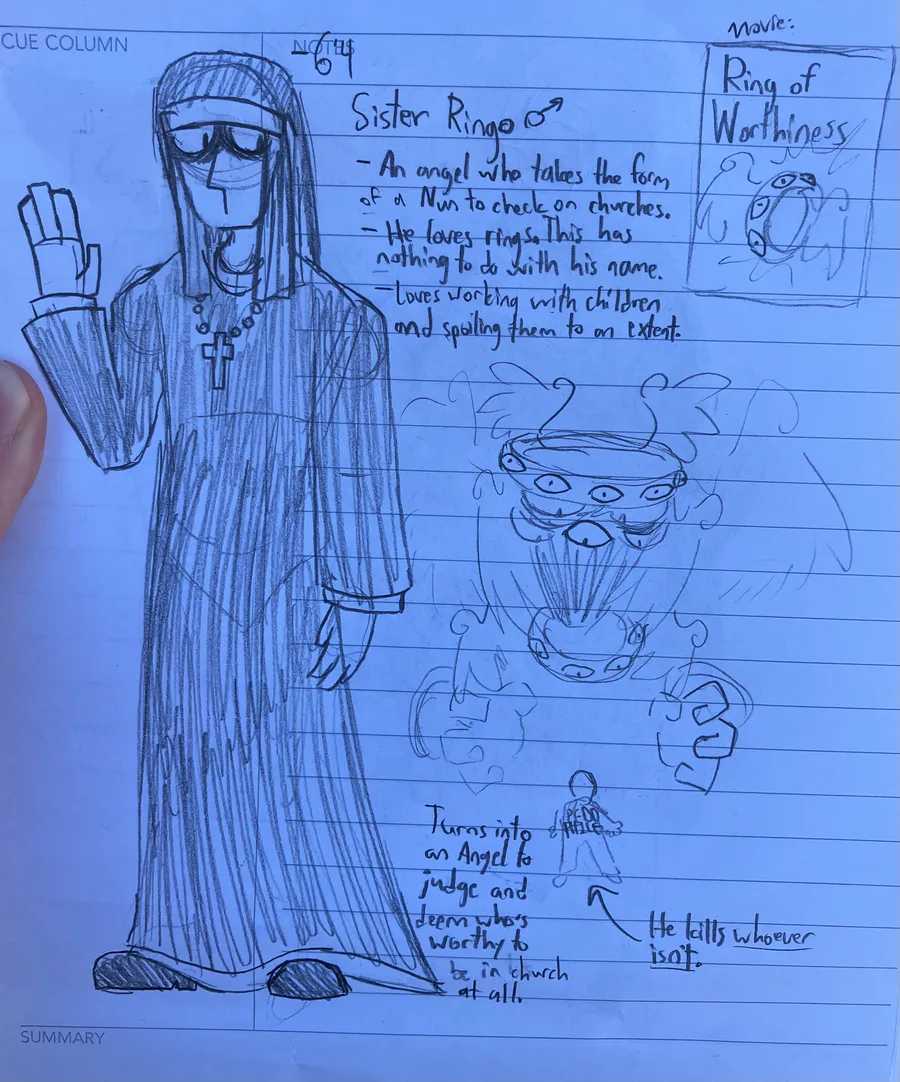 CUE COLUMN
NOTES
-64
Movie:
Ring of
Worthiness
Sister Ringo ♂
- An angel who takes the form
of a Nun to check on churches.
- He loves rings. This has
nothing to do with his name.
- Loves working with children
and spoiling them to an extent.
PEDO
PHILE
Turns into
an Angel to
judge and
deem who's
worthy to
be in church
at all.
He kills whoever
isn't.
SUMMARY